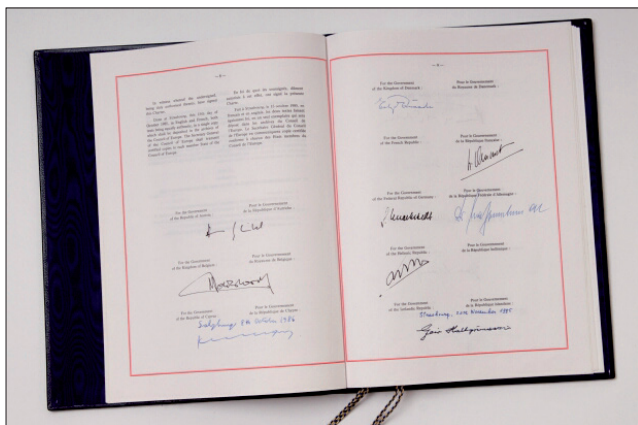 In witness whereof the undersigned,
being duly authorised thereto, have signed
this Charter.
Done at Strasbourg, this 15th day of
October 1985, in English and French, both
texts being equally authentic, in a single copy
which shall be deposited in the archives of
the Council of Europe. The Secretary General
of the Council of Europe shall transmit
certified copies to each member State of the
Council of Europe.
En foi de quoi, les soussignés, dûment
autorisés à cet effet, ont signé la présente
Charte.
Fait à Strasbourg, le 15 octobre 1985, en
français et en anglais, les deux textes faisant
également foi, en un seul exemplaire qui sera
déposé dans les archives du Conseil
de l'Europe. Le Secrétaire Général du Conseil
de l'Europe en communiquera copie certifiée
conforme à chacun des Etats membres du
Conseil de l'Europe.
For the Government
of the Republic of Austria :
Pour le Gouvernement
de la République d'Autriche :
For the Government
of the Kingdom of Belgium :
Pour le Gouvernement
du Royaume de Belgique :
For the Government
of the Republic of Cyprus :
Pour le Gouvernement
de la République de Chypre :
Salzburg 8th October 1986
For the Government
of the Kingdom of Denmark :
Pour le Gouvernement
du Royaume de Danemark :
For the Government
of the French Republic :
Pour le Gouvernement
de la République française :
For the Government
of the Federal Republic of Germany :
Pour le Gouvernement
de la République Fédérale d'Allemagne :
For the Government
of the Hellenic Republic :
Pour le Gouvernement
de la République hellénique :
For the Government
of the Icelandic Republic :
Pour le Gouvernement
de la République islandaise :
Strasbourg, 20th November 1985
Geir Hallgrímsson